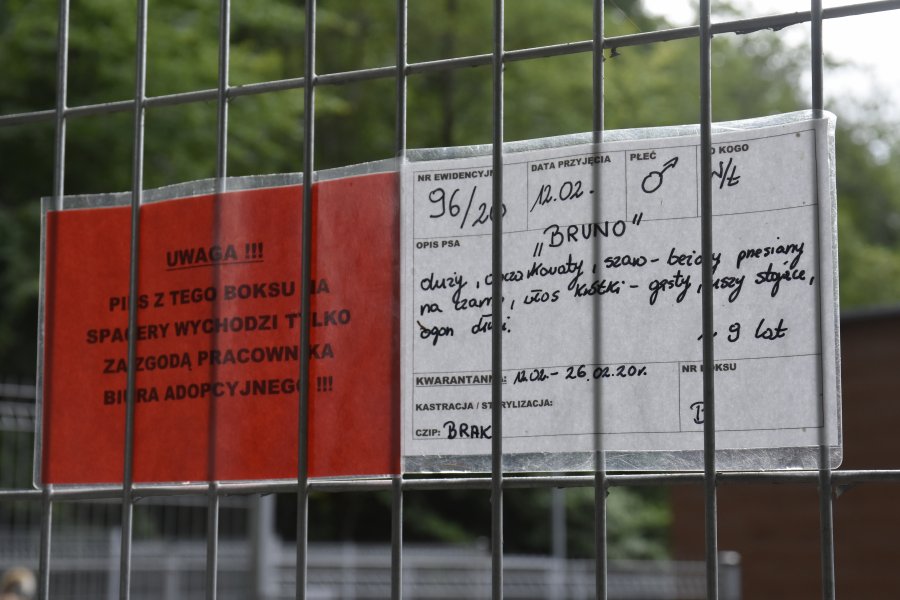 UWAGA !!!
PIES Z TEGO BOKSU NA
SPACERY WYCHODZI TYLKO
ZA ZGODĄ PRACOWNIKA
BIURA ADOPCYJNEGO !!!
NR EWIDENCYJNY
96/20
DATA PRZYJĘCIA
12.02.
PŁEĆ
♂
OD KOGO
W/Ł
OPIS PSA
„BRUNO"
duży, szaro-beżowy pręsiany
na czarno, włos krótki - gęsty, uszy stojące,
ogon długi.
~ 9 lat
KWARANTANNA: 12.02.-26.02.20r.
NR BOKSU
KASTRACJA / STERYLIZACJA:
CZIP: BRAK